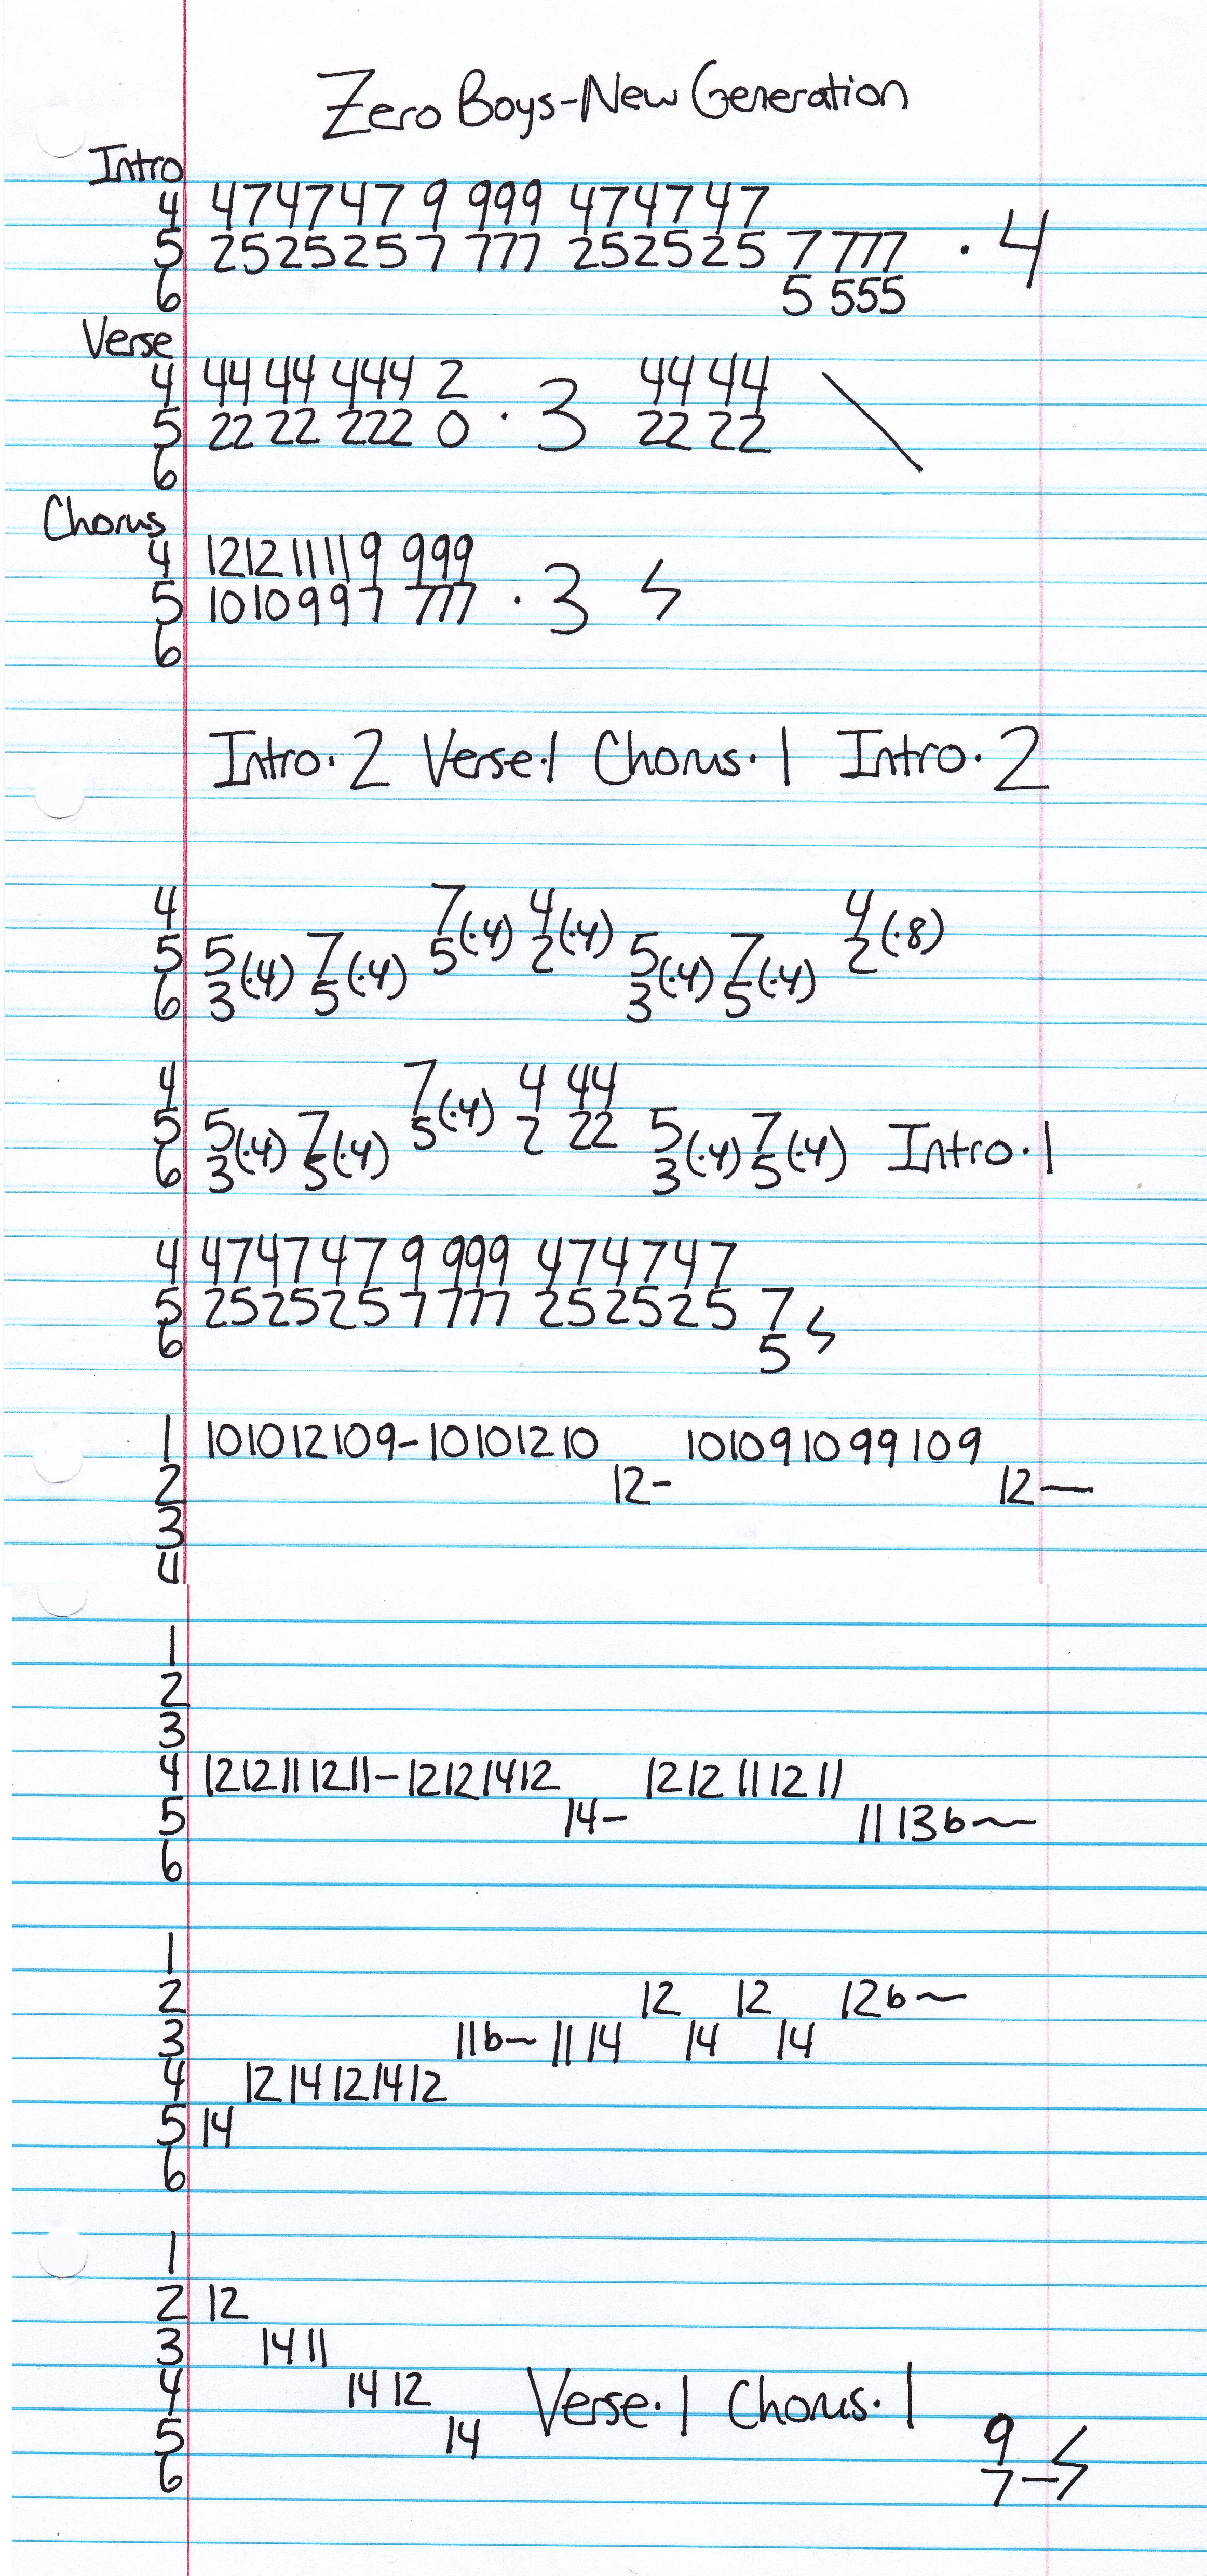 Zero Boys-New Generation
Intro
4 474747 9 999 474747
5 252525 7 777 252525 7 777 · 4
6 5 555
Verse
4 44 44 444 2 44 44
5 22 22 222 0 · 3 22 22
6
Chorus
4 121211119 999
5 1010997 777 · 3
6
Intro·2 Verse·1 Chorus·1 Intro·2
4 7 4 4
5 5 (·4) 7 (·4) 5 (·4) 2 (·4) 5 (·4) 7 (·4) 2 (·8)
6 3 5 3 5
4 7 4 44
5 5 (·4) 7 (·4) 5 (·4) 2 22 5 (·4) 7 (·4) Intro·1
6 3 5 3 5
4 474747 9 999 474747
5 252525 7 777 252525 7
6 5
1 101012109-10101210 10109109 9109
2 12- 12—
3
4
1
2
3
4 1212111211-12121412 1212111211
5 14- 1113b~
6
1
2 12 12 12b~
3 11b~ 1114 14 14
4 1214121412
5 14
6
1
2 12
3 1411
4 1412 Verse·1 Chorus·1
5 14 9
6 7-